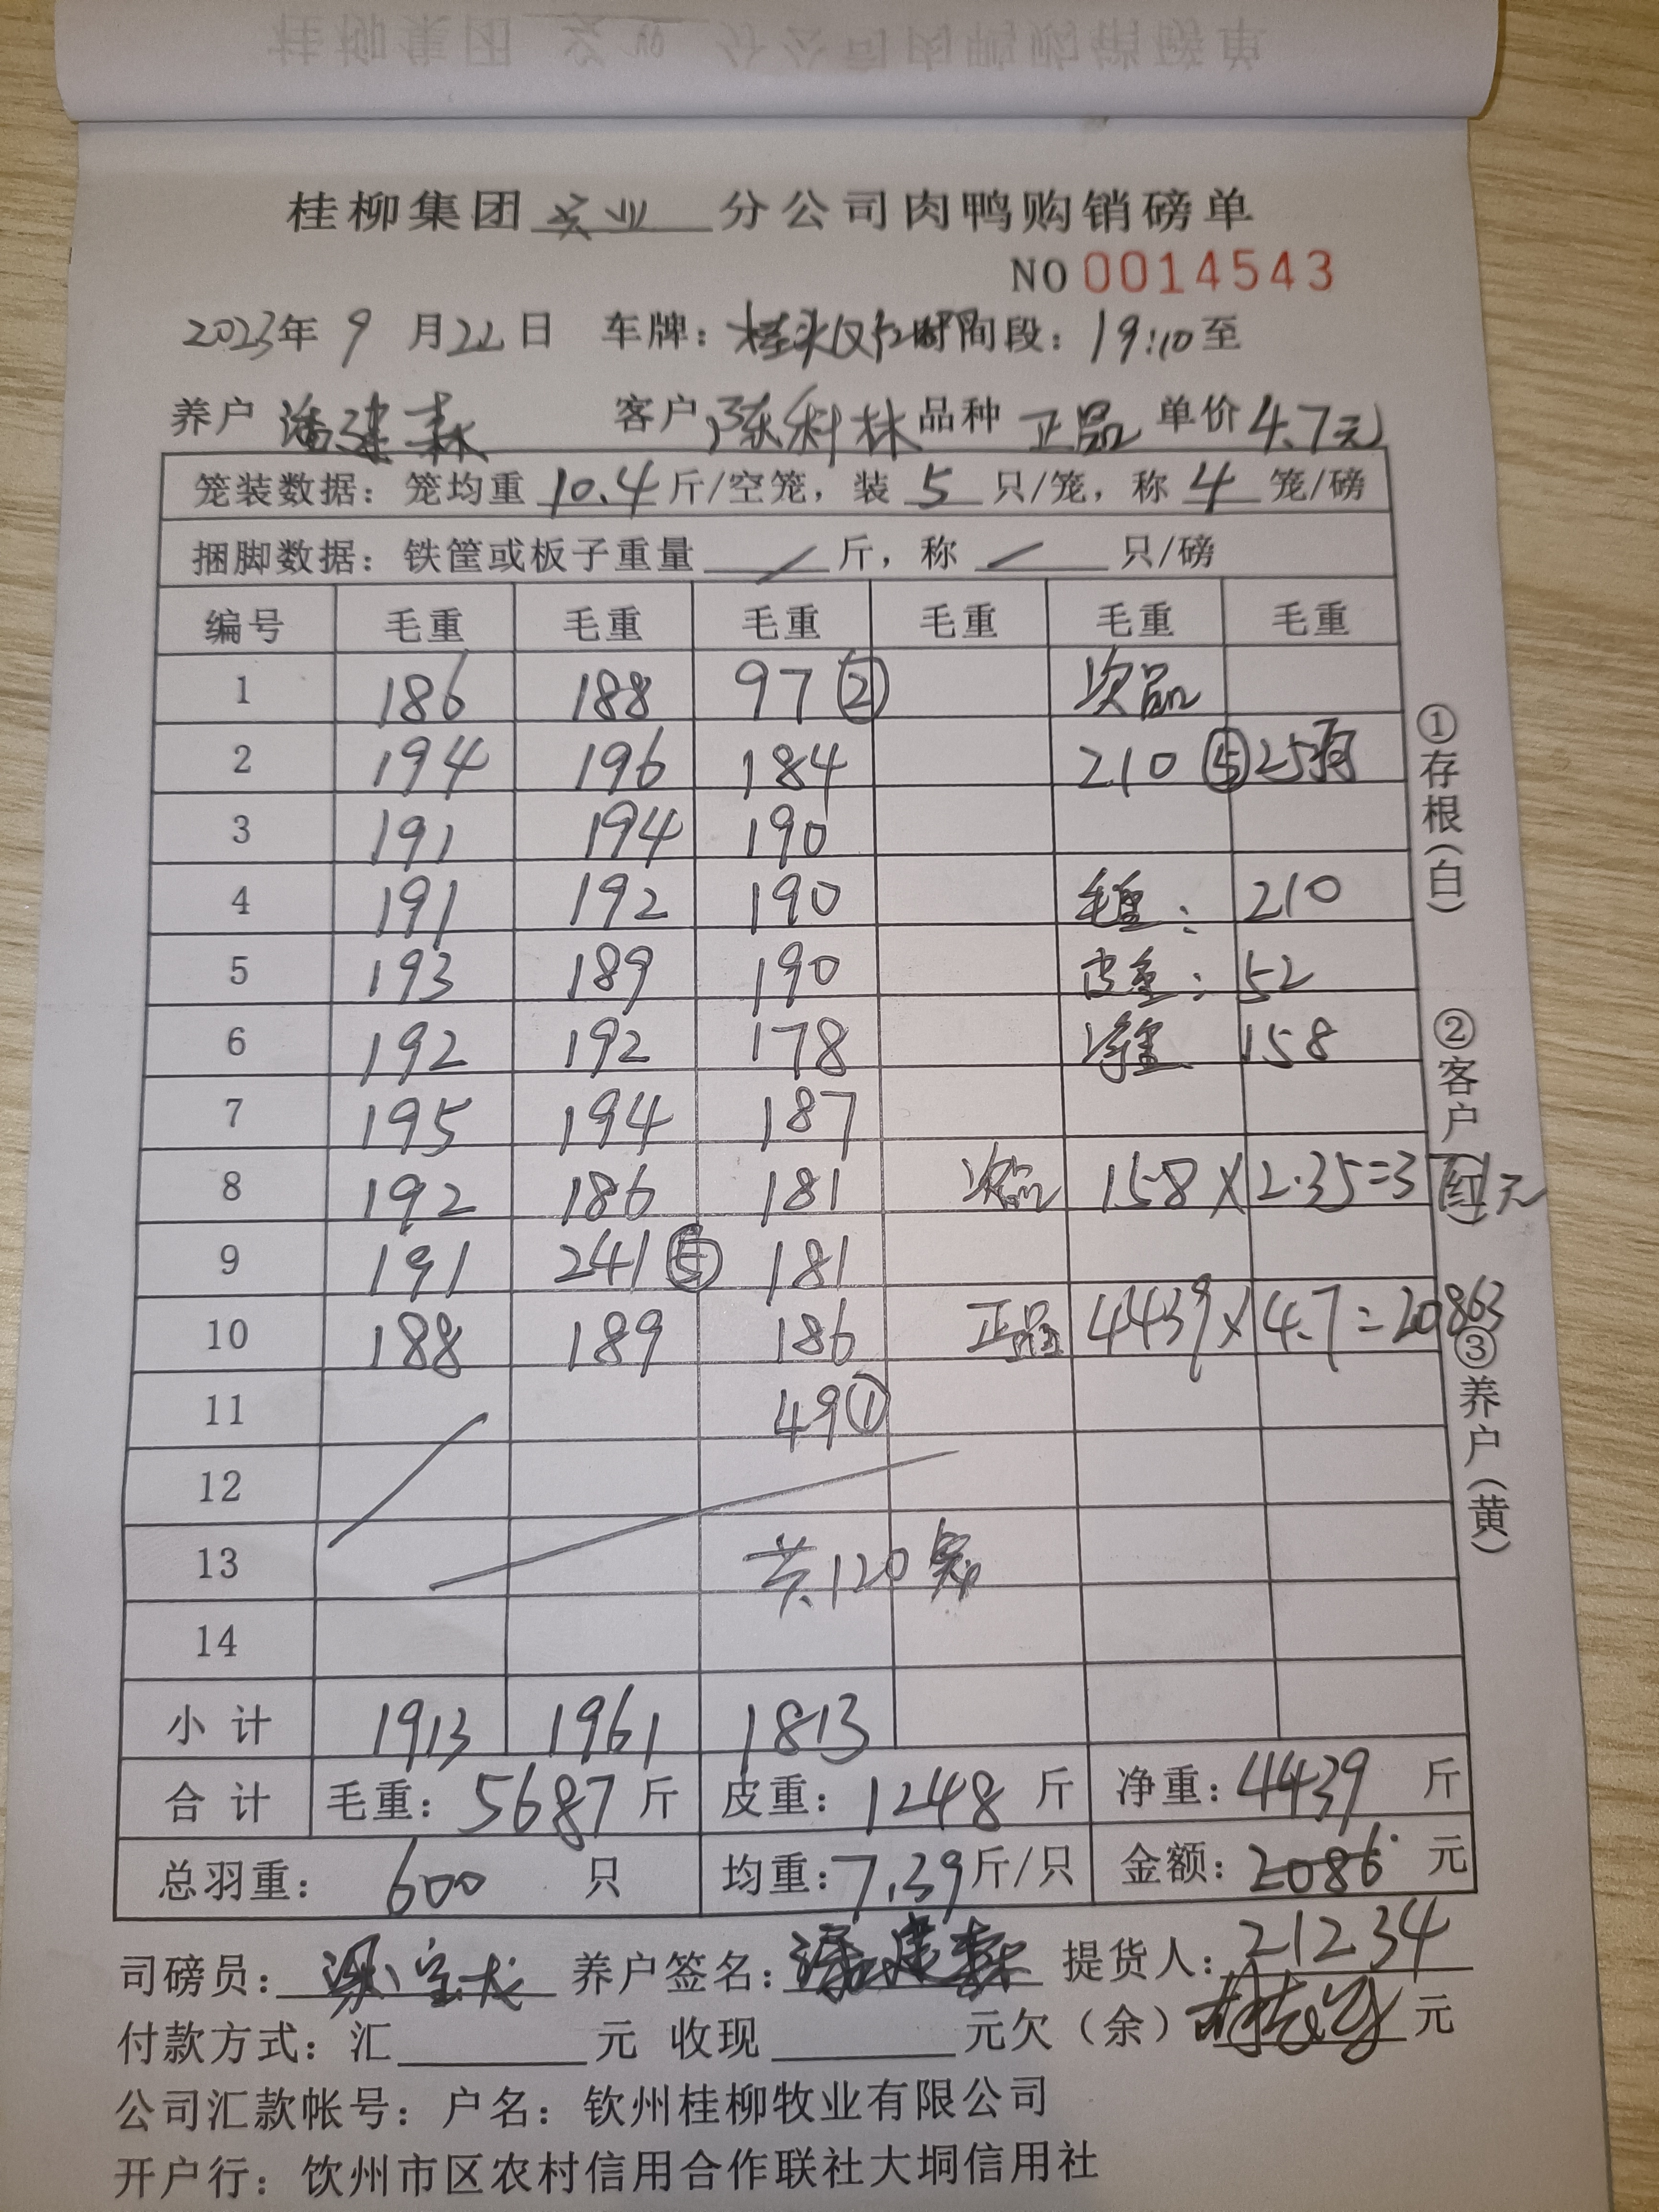 桂柳集团 农业 分公司肉鸭购销磅单
NO 0014543
2023年 9 月22日 车牌: 时间段: 19:10至
养户 潘建森 客户 陈科林 品种 正品 单价 4.7元
笼装数据: 笼均重 10.4 斤/空笼, 装 5 只/笼, 称 4 笼/磅
捆脚数据: 铁筐或板子重量 / 斤, 称 / 只/磅
编号 毛重 毛重 毛重 毛重 毛重 毛重
1 186 188 97 ② 次品
2 194 196 184 210 ⑤ 25羽
3 191 194 190
4 191 192 190 毛重: 210
5 193 189 190 皮重: 52
6 192 192 178 净重 158
7 195 194 187
8 192 186 181 次品 158×2.35=3 元
9 191 241 ⑤ 181
10 188 189 186 正品 4439×4.7=20863
11 49 ①
12
13 共120笼
14
小计 1913 1961 1813
合计 毛重: 5687 斤 皮重: 1248 斤 净重: 4439 斤
总羽重: 600 只 均重: 7.39 斤/只 金额: 2086 元
21234
司磅员: 养户签名: 潘建森 提货人:
付款方式: 汇 元 收现 元欠(余) 元
公司汇款帐号: 户名: 钦州桂柳牧业有限公司
开户行: 饮州市区农村信用合作联社大垌信用社
①存根(白)
②客户(红)
③养户(黄)